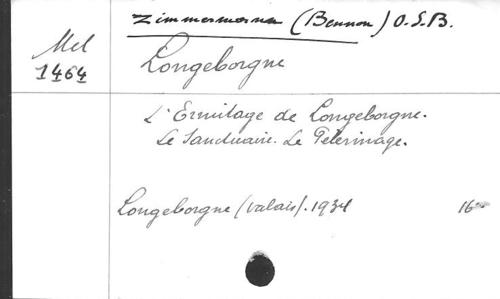 Zimmermann (Bennon) O.S.B.
Mel
1464
Longeborgne
L'Ermitage de Longeborgne.
Le Sanctuaire. Le Pèlerinage.
Longeborgne (Valais). 1934 16°